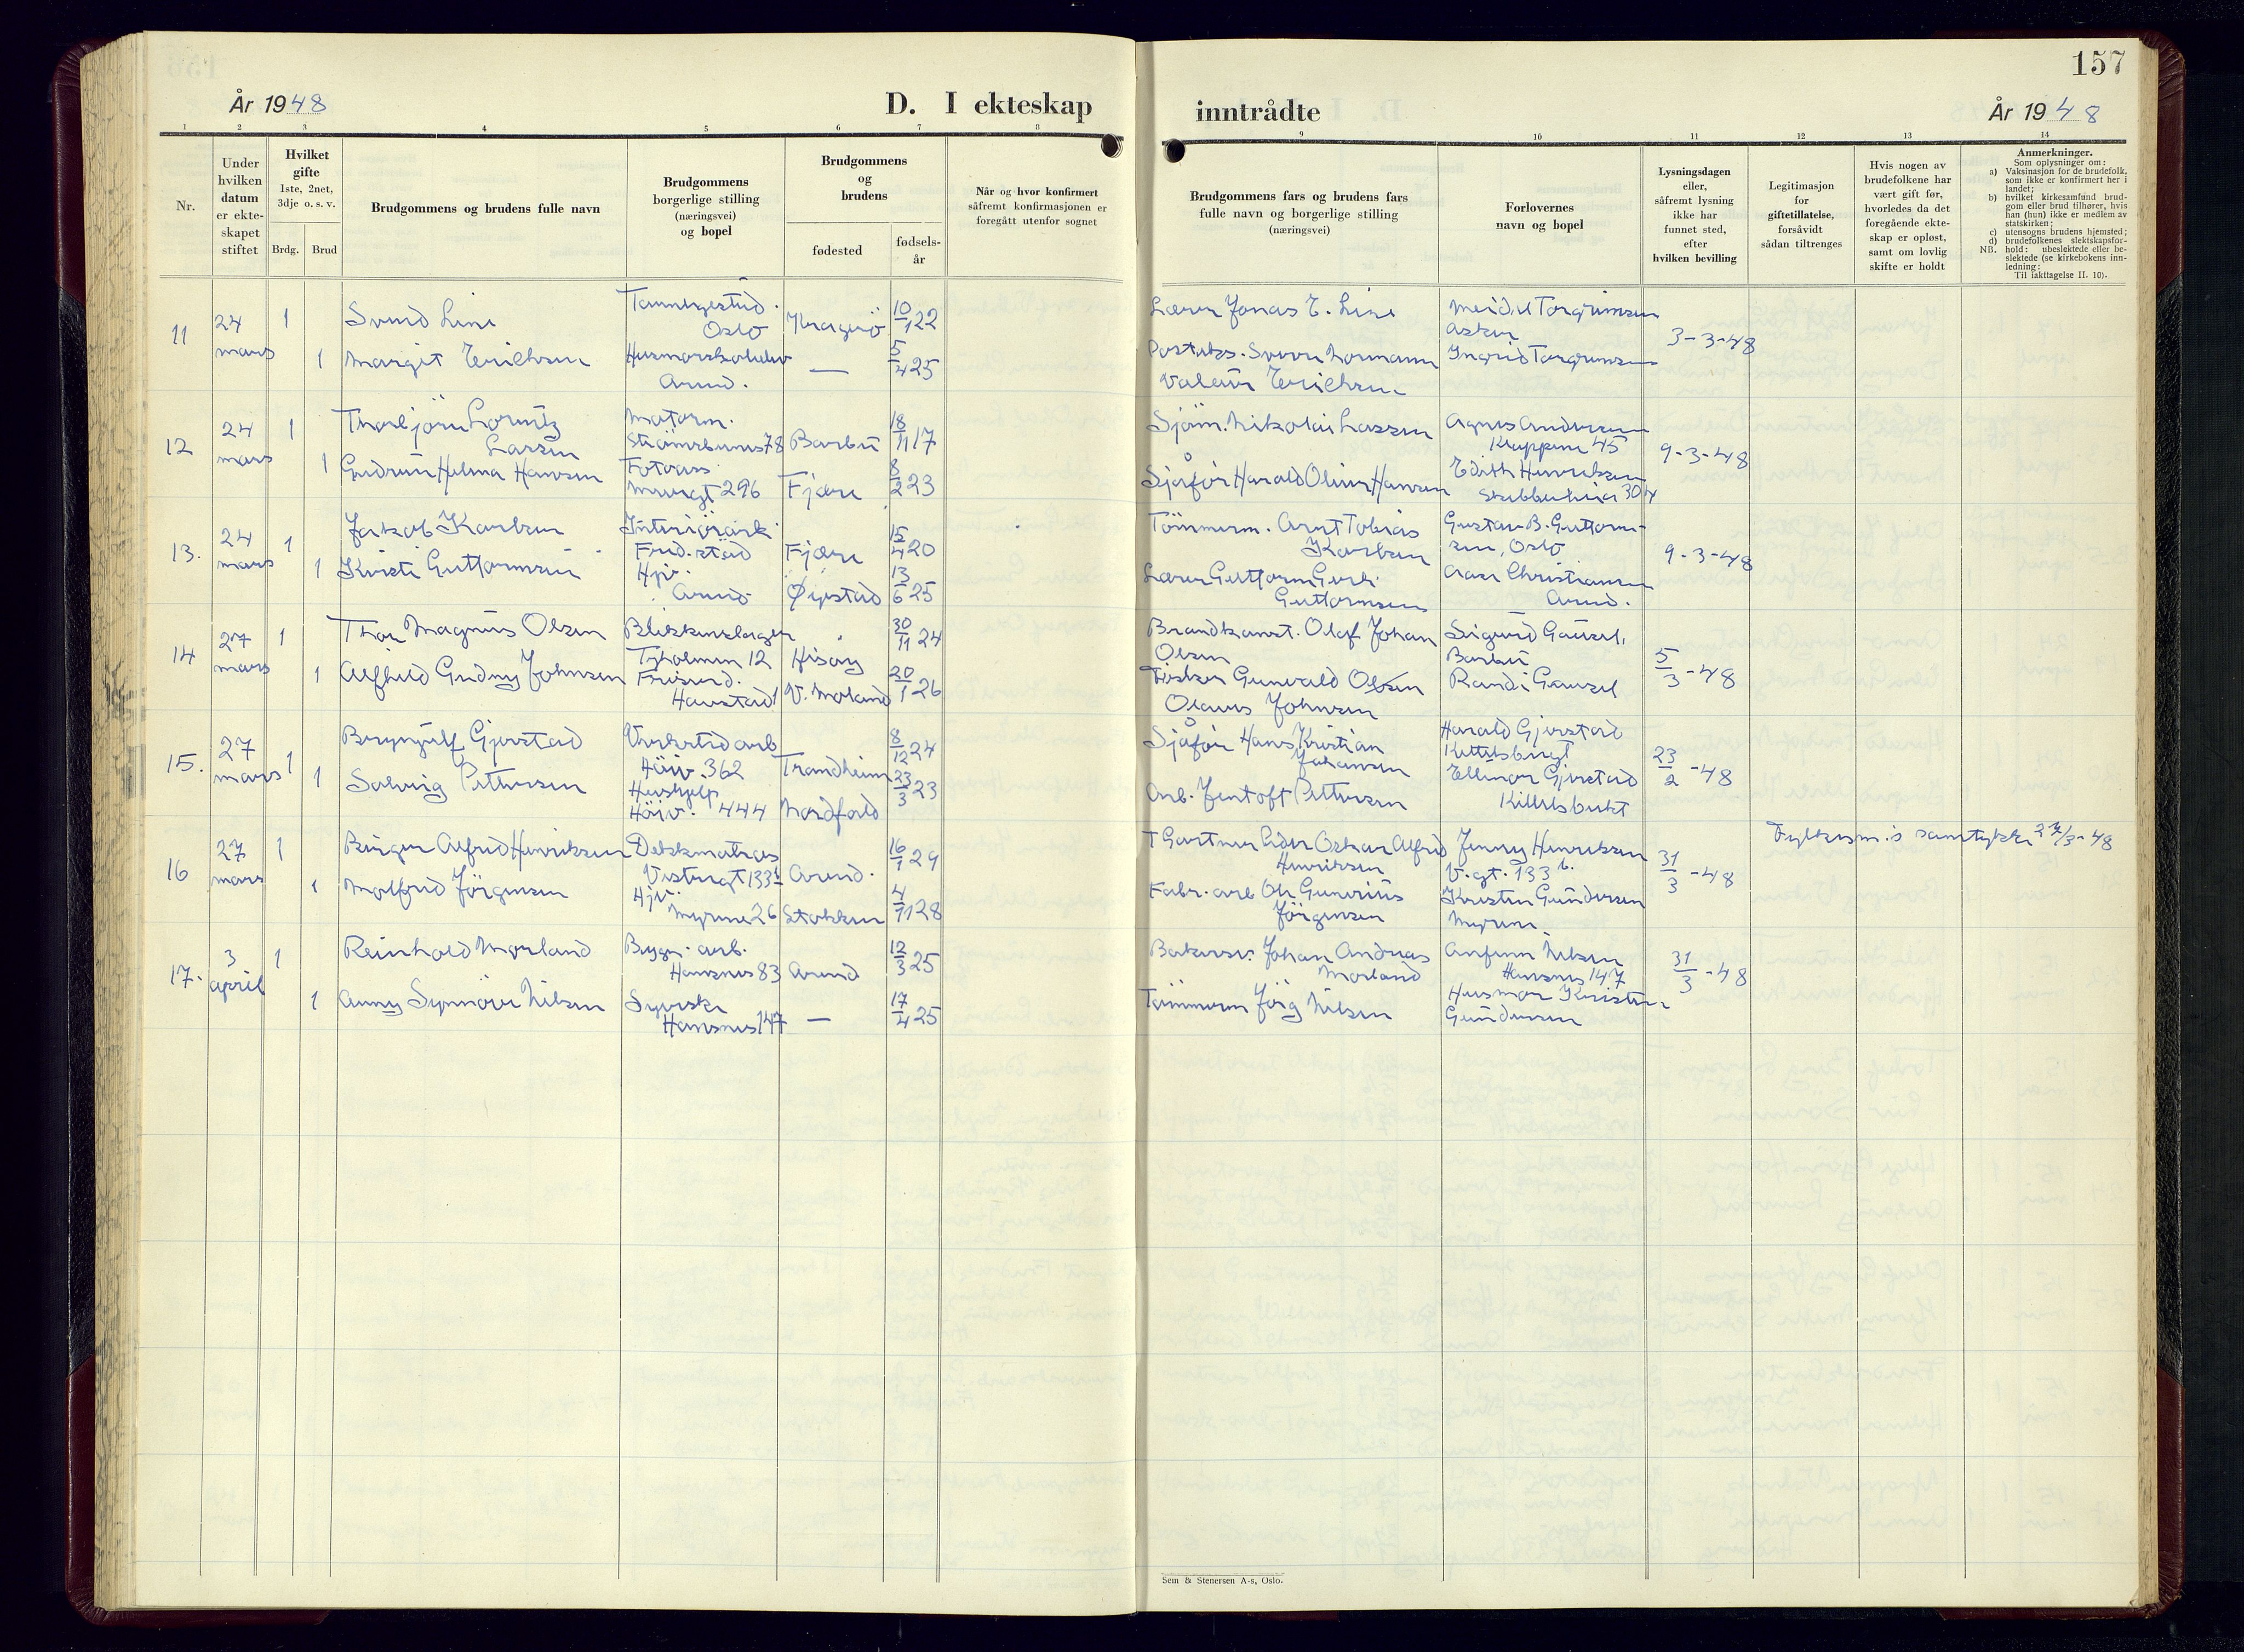 157
År 1948
D. I ekteskap
inntrådte
År 1948
1 2 3 4 5 6 7 8 9 10 11 12 13 14
Nr.
Under
hvilken
datum
er ekte-
skapet
stiftet
Hvilket
gifte
1ste, 2net,
3dje o. s. v.
Brdg. Brud
Brudgommens og brudens fulle navn
Brudgommens
borgerlige stilling
(næringsvei)
og bopel
Brudgommens
og
brudens
fødested
fødsels-
år
Når og hvor konfirmert
såfremt konfirmasjonen er
foregått utenfor sognet
Brudgommens fars og brudens fars
fulle navn og borgerlige stilling
(næringsvei)
Forlovernes
navn og bopel
Lysningsdagen
eller,
såfremt lysning
ikke har
funnet sted,
efter
hvilken bevilling
Legitimasjon
for
giftetillatelse,
forsåvidt
sådan tiltrenges
Hvis nogen av
brudefolkene har
vært gift før,
hvorledes da det
foregående ekte-
skap er opløst,
samt om lovlig
skifte er holdt
Anmerkninger.
Som oplysninger om:
a) Vaksinasjon for de brudefolk,
som ikke er konfirmert her i
landet;
b) hvilket kirkesamfund brud-
gom eller brud tilhører, hvis
han (hun) ikke er medlem av
statskirken;
c) utensogns brudens hjemsted;
d) brudefolkenes slektskapsfor-
NB. hold: ubeslektede eller be-
slektede (se kirkebokens inn-
ledning:
Til iakttagelse II. 10).
11 24 mars 1
Oslo Kragerø 10/1 22
Lærer Jonas E.
3-3-48
1 Margit Erichsen
Arend. — 5/4 25
Ingrid Torgrimsen
Erichsen
12 24 mars 1 Thorbjörn Lorentz
Larsen
Motorm.
Strömsbunes 78 Barbu 18/11 17
Sjöm. Nikolai Larsen
Agnes Andersen
Kleppene 45
9-3-48
1 Gudrun Helma Hansen
296 Fjære 8/2 23
Sjåför Harald Oliver Hansen
Edith Henriksen
304
13. 24 mars 1 Jakob Karlsen
Fred.stad Fjære 15/4 20
Tömmerm. Arnt Tobias
Karlsen
Gustav B. Guttorm-
sen, Oslo
9-3-48
1 Kirsti Guttormsen
Hjv.
Arend. Øyestad 13/6 25
Lærer Guttorm
Guttormsen
Christiansen
Arend.
14 27 mars 1 Thor Magnus Olsen
Tyholmen 12 Hisøy 30/11 24
Olaf Johan
Olsen
Sigurd Gausel,
Barbu
5/3-48
1 Alfhild Gudny Johnsen
Frisörd.
V. Moland 20/1 26
Fisker Gunvald Olsen
Olaus Johnsen
Randi Gausel
15. 27 mars 1 Brynjulf Gjerstad
Verksted arb
Höiv. 362 Trondheim 8/12 24
Sjåför Hans Kristian
Johansen
Harald Gjerstad
Kittelsbugt
23/2-48
1 Solveig Pettersen
Hushjelp
Höiv. 444 Nordfold 23/3 23
Arb. Jentoft Pettersen
Ellinor Gjerstad
Kittelsbukt
16 27 mars 1 Birger Alfred Henriksen
Dekksmatros
Vestregt 133b Arend. 16/1 29
Oskar Alfred
Henriksen
Jenny Henriksen
V.gt. 133 b.
31/3-48
Fylkesm.s samtykke 27/3-48
1 Molfrid Jörgensen
Hjv.
Myrene 26 Stokken 4/11 28
Fabr. arb Ole Gunerius
Jörgensen
Kirsten Gundersen
Myrene.
17. 3 april 1 Reinhold Morland
Bygn. arb.
Hansnes 83 Arend 12/3 25
Bakersv. Johan Andreas
Morland
Nilsen
Hansnes 147
31/3-48
1 Anny Synnöve Nilsen
Syerske
Hansnes 147 — 17/4 25
Tömmerm Nilsen
Husmor Kirsten
Gundersen
Sem & Stenersen A-s, Oslo.